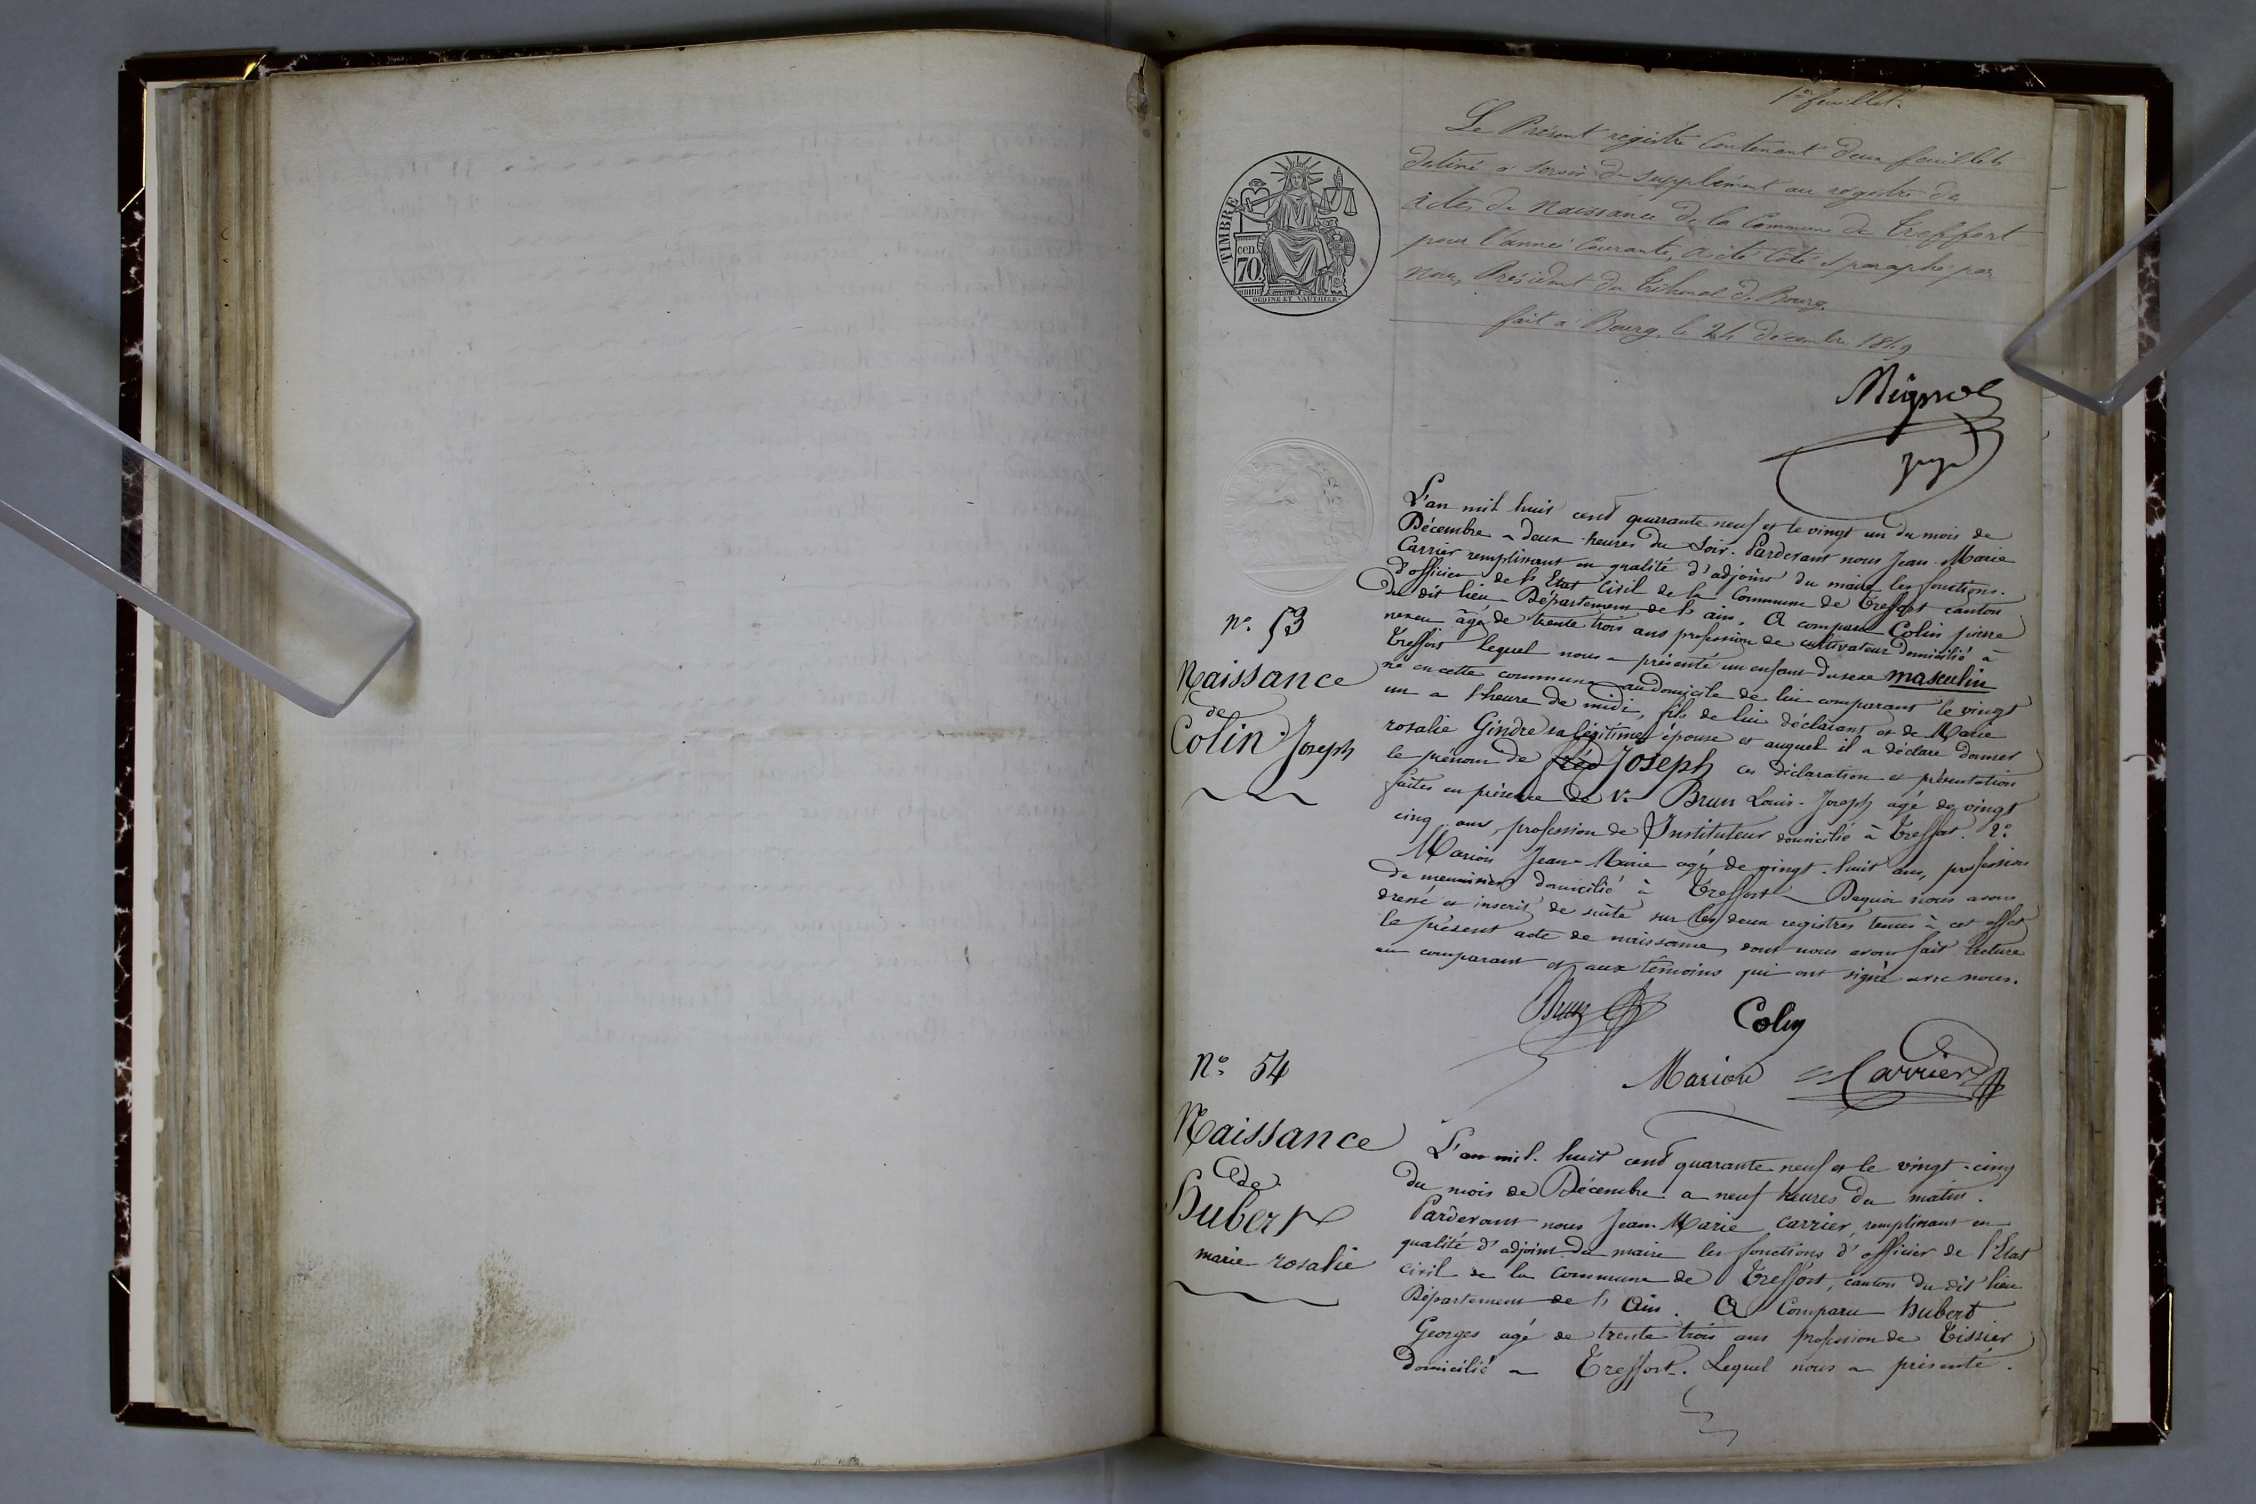 1er feuillet.
Le Présent registre Contenant deux feuillets
destiné à servir de supplément au registre de
actes de Naissance de la Commune de Treffort
pour l'année Courante, a été Côté & paraphé par
nous, Président du Tribunal de Bourg.
fait à Bourg, le 24 décembre 1849
TIMBRE
cen
70
OUDINE ET VAUTHIER
L'an mil huit cent quarrante neuf et le vingt un du mois de
Décembre a deux heures du Soir. Pardevant nous Jean-Marie
Carrier remplissant en qualité d'adjoint du maire les fonctions.
d'officier de l'Etat Civil de la Commune de Treffort canton
du dit lieu Département de l'ain. A comparu Colin pierre
âgé de trente trois ans profession de cultivateur domicilié à
Treffort lequel nous a présenté un enfant du sexe masculin
né en cette commune au domicile de lui comparant le vingt
un a l'heure de midi, fils de lui déclarant et de Marie
rosalie Gindre sa légitime épouse et auquel il a déclaré donner
le prénom de Joseph ces déclaration et présentation
faites en présence de 1º Brun Louis-Joseph agé de vingt
cinq ans, profession de Instituteur domicilié à Treffort. 2º
Marion Jean-Marie agé de vingt-huit ans, profession
de menuisier domicilié à Treffort Dequoi nous avons
dressé et inscrit de suite sur les deux registres tenus à cet effet
le présent acte de naissance, dont nous avons fait lecture
au comparant et aux témoins qui ont signé avec nous.
nº 53
Naissance
de
Colin Joseph
Brun Colin
Marion Carrier
Nº 54
Naissance
de
Hubert
marie rosalie
L'an mil huit cent quarante neuf et le vingt-cinq
du mois de Décembre a neuf heures du matin.
Pardevant nous Jean-Marie Carrier, remplissant en
qualité d'adjoint du maire les fonctions d'officier de l'Etat
civil de la Commune de Treffort, canton du dit lieu
Département de l'Ain. A Comparu hubert
Georges agé de trente trois ans profession de Tissier
domicilié a Treffort. Lequel nous a présenté.